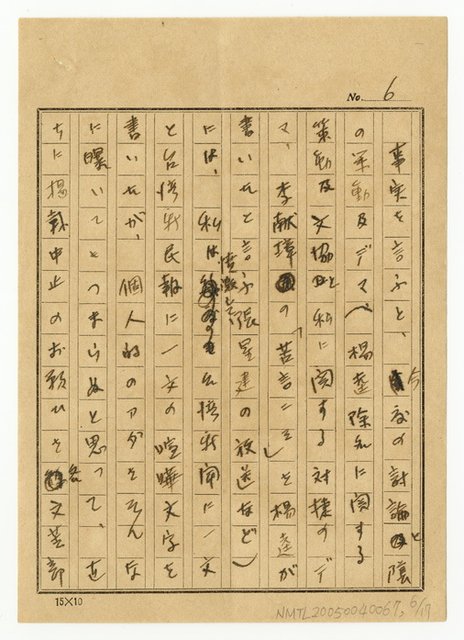 No. 6
事実を言ふと、今度の討論と陰
の策動及デマベ楊逵除名に関する
策動及文協と私に関する対捷のデ
マ、李献璋の「苦言二三」を楊逵が
書いたと言ふ張星建の放送など
には、私は憤激して台湾新聞に一文
と台湾新民報に一文の喧嘩文字を
書いたが、個人的のアダをこんな
に曝いてもつまらぬと思って、直
ちに掲載中止のお願ひを各文芸部
15×10
NMTL20050040067, 6/17